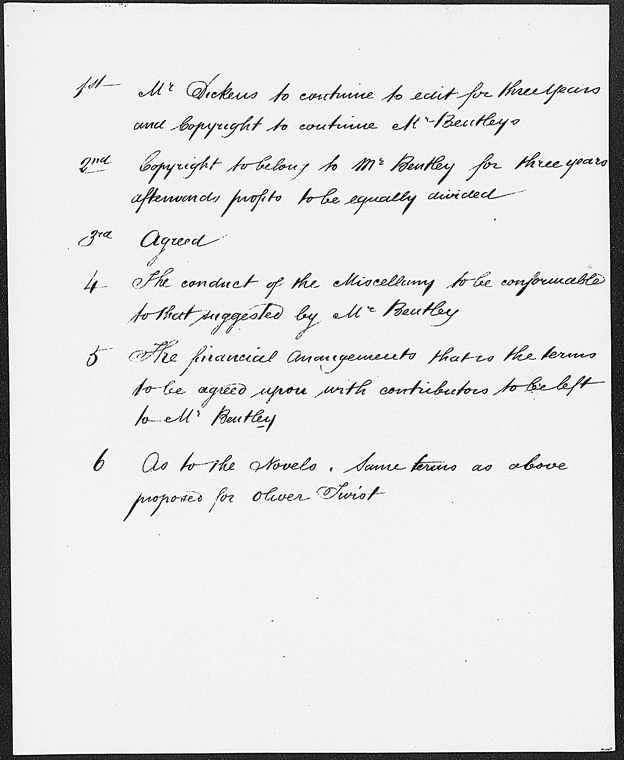 1st Mr Dickens to continue to edit for three years
and Copyright to continue Mr Bentleys
2nd Copyright to belong to Mr Bentley for three years
afterwards profits to be equally divided
3rd Agreed
4 The conduct of the Miscellany to be conformable
to that suggested by Mr Bentley
5 The financial arrangements that is the terms
to be agreed upon with contributors to be left
to Mr Bentley
6 As to the Novels. Same terms as above
proposed for Oliver Twist